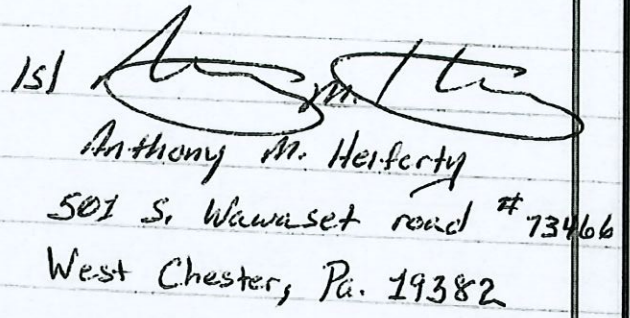 /s/ A M. H
Anthony M. Heiferty
501 S. Wawaset road # 73466
West Chester, Pa. 19382